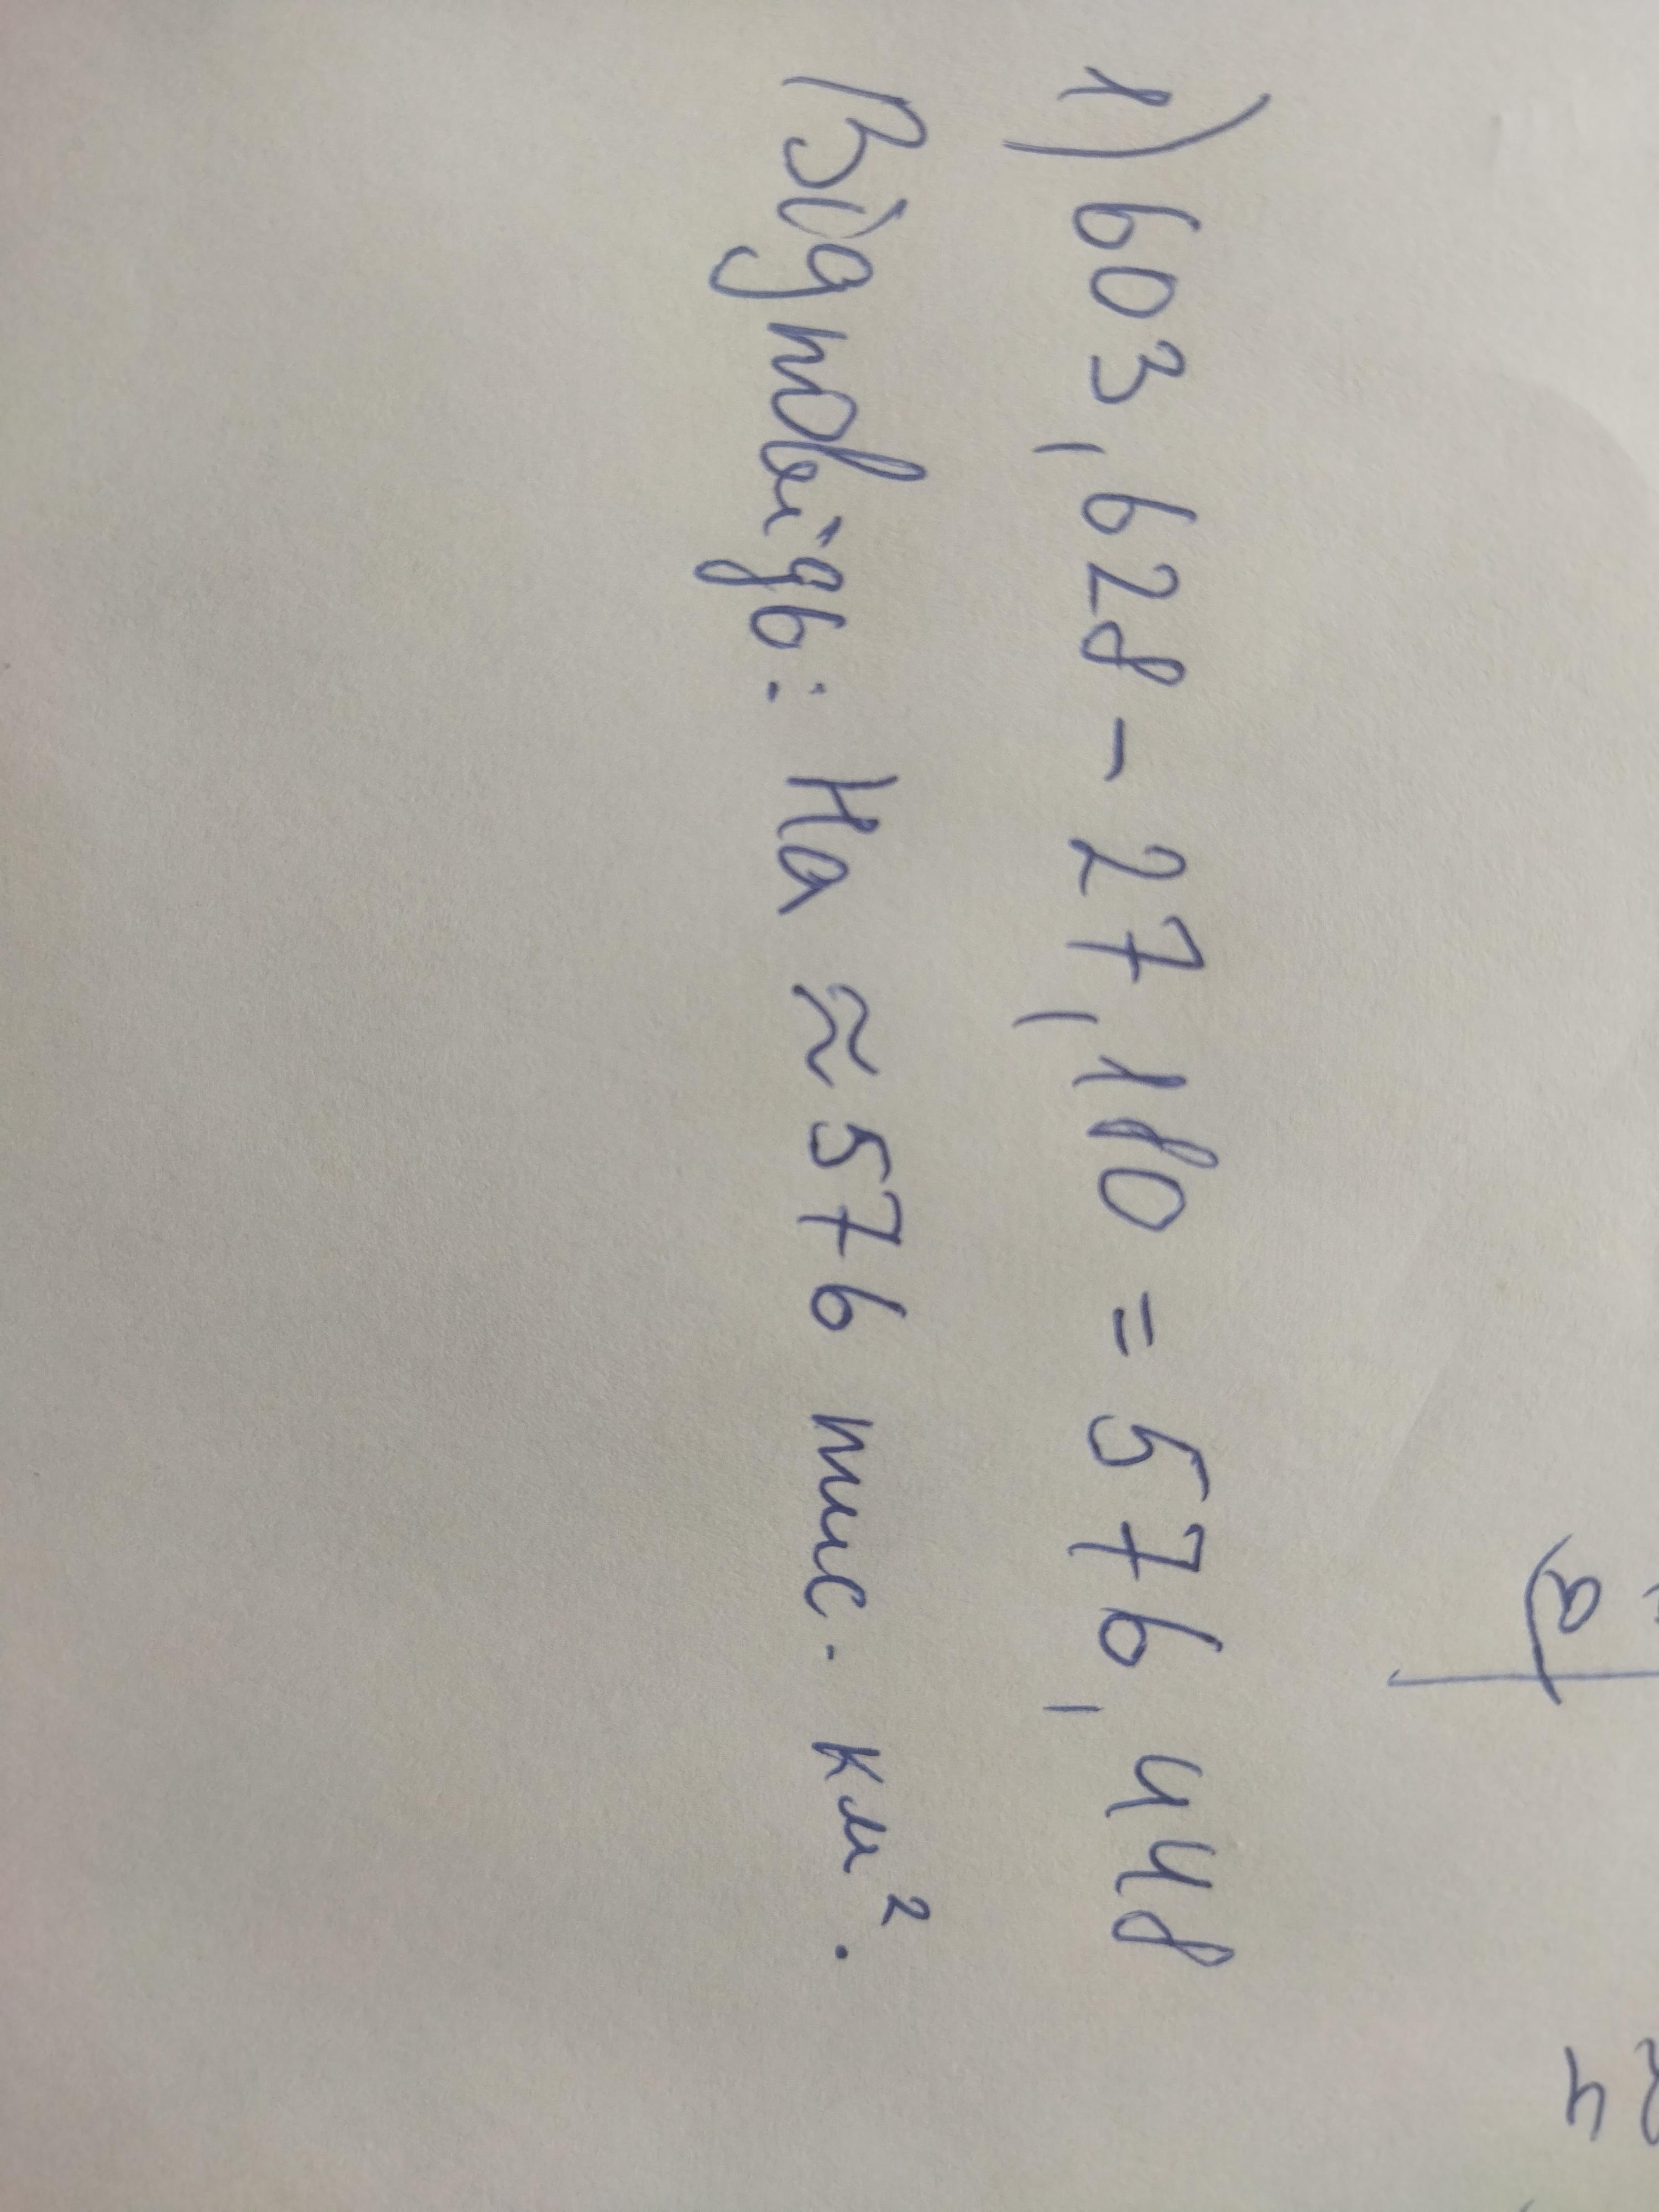 1) 603,628 - 27,180 = 576,448
Відповідь: На ≈ 576 тис. км².